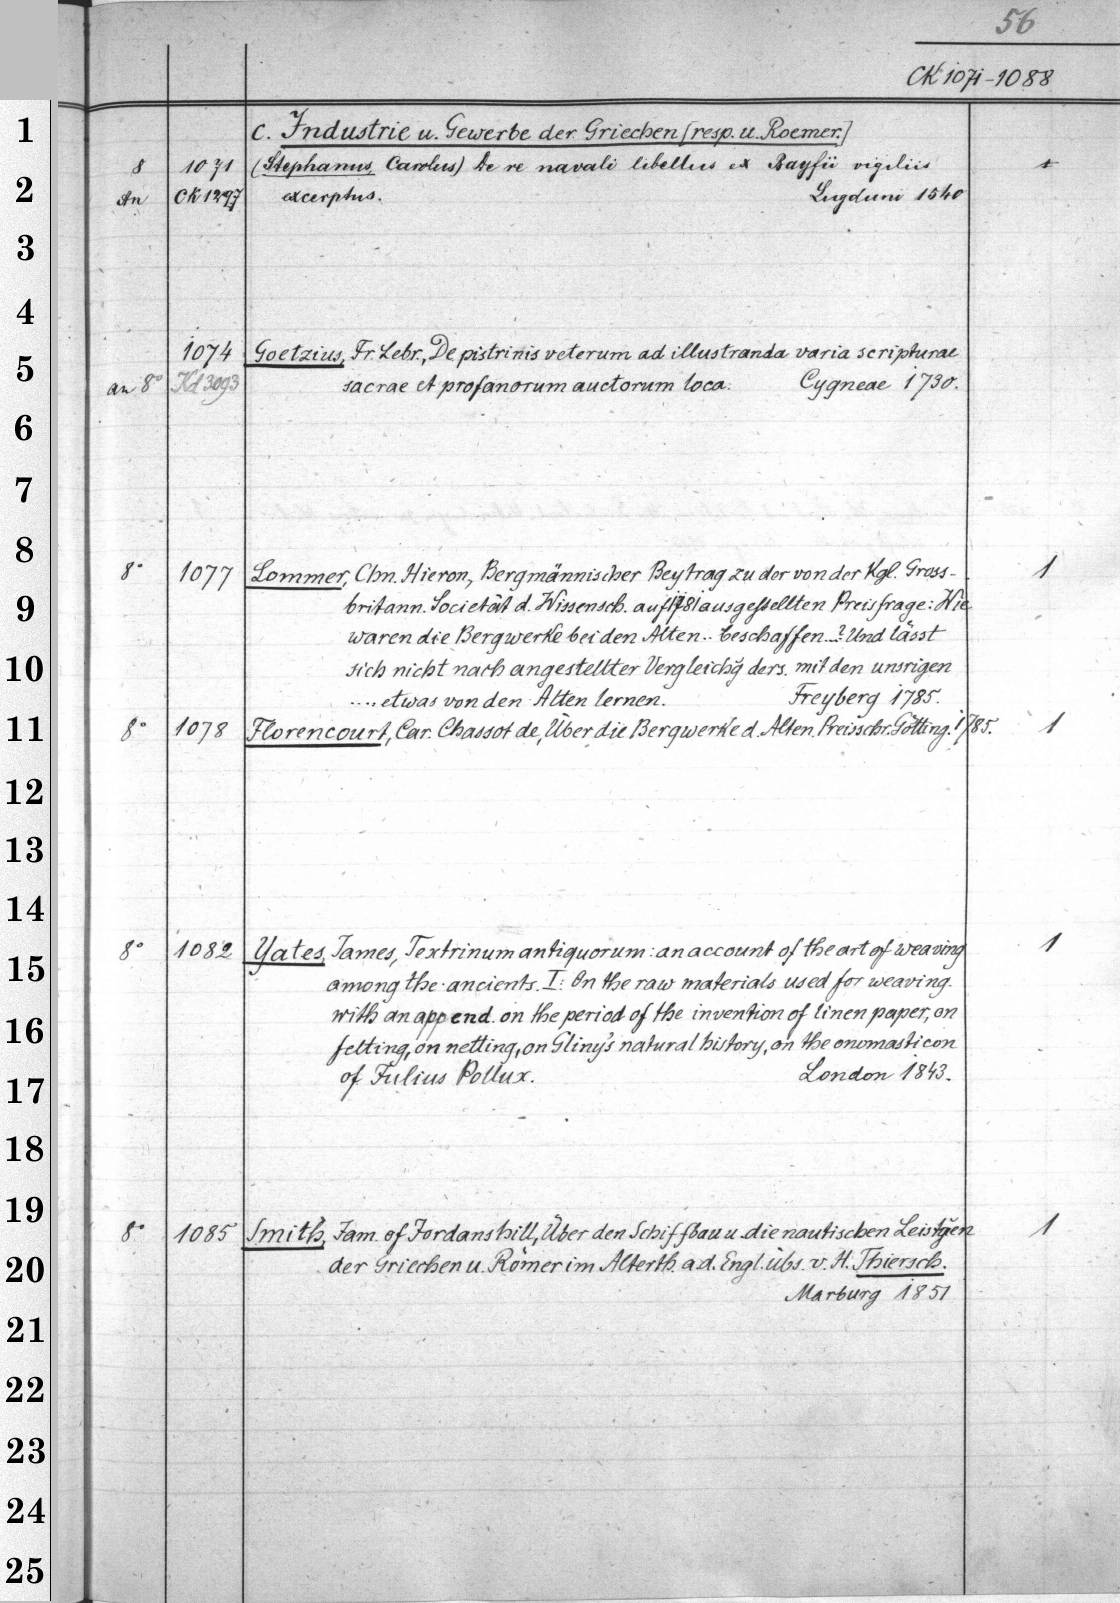 56
CK 1071-1088
1 c. Industrie u. Gewerbe der Griechen [resp. u. Roemer.]
8 1071 (Stephanus, Carolus) De re navali libellus ex Bayfii vigiliis
2 An CK 1297 excerptus. Lugduni 1540
3
4
1074 Goetzius, Fr. Lebr., De pistrinis veterum ad illustranda varia scripturae
5 an 8° Kd 3093 sacrae et profanorum auctorum loca. Cygneae 1730.
6
7
8
8° 1077 Lommer, Chn. Hieron, Bergmännischer Beytrag zu der von der Kgl. Gross- 1
9 britann. Societät d. Wissensch. auf 1781 ausgestellten Preisfrage: Wie
waren die Bergwerke bei den Alten .. beschaffen ..? Und lässt
10 sich nicht nach angestellter Vergleichg ders. mit den unsrigen
.... etwas von den Alten lernen. Freyberg 1785.
11 8° 1078 Florencourt, Car. Chassot de, Über die Bergwerke d. Alten. Preisschr. Götting. 1785. 1
12
13
14
8° 1082 Yates, James, Textrinum antiquorum: an account of the art of weaving 1
15 among the ancients. I: On the raw materials used for weaving.
with an append. on the period of the invention of linen paper, on
16 felting, on netting, on Gliny's natural history, on the onomasticon
17 of Julius Pollux. London 1843.
18
19
8° 1085 Smith, Jam. of Jordanshill, Über den Schiffbau u. die nautischen Leistgen 1
20 der Griechen u. Römer im Alterth. a. d. Engl. übs. v. H. Thiersch.
Marburg 1851
21
22
23
24
25